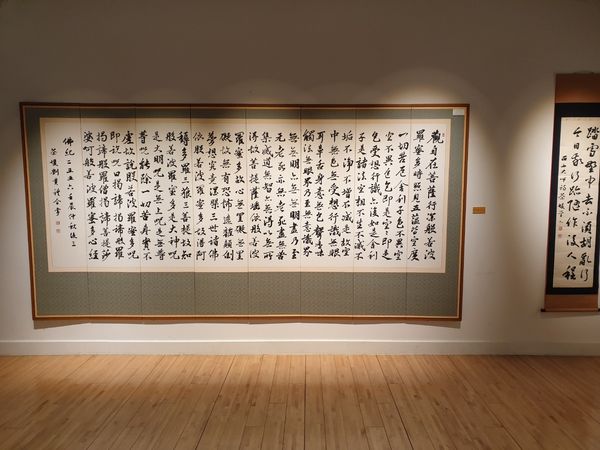 踏雪野中去不須胡亂行
今日我行跡遂作後人程
觀自在菩薩行深般若波
羅蜜多時照見五蘊皆空度
一切苦厄舍利子色不異空
空不異色色即是空空即是
色受想行識亦復如是舍利
子是諸法空相不生不滅不
垢不淨不增不減是故空
中無色無受想行識無眼
耳鼻舌身意無色聲香味
觸法無眼界乃至無意識界
無無明亦無無明盡乃至
無老死亦無老死盡無苦
集滅道無智亦無得以無所
得故菩提薩埵依般若波
羅蜜多故心無罣礙無罣
礙故無有恐怖遠離顛倒
夢想究竟涅槃三世諸佛
依般若波羅蜜多故得阿
耨多羅三藐三菩提故知
般若波羅蜜多是大神呪
是大明呪是無上呪是無等
等呪能除一切苦真實不
虛故說般若波羅蜜多呪
即說呪曰揭諦揭諦般羅
揭諦般羅僧揭諦菩提莎
婆訶般若波羅蜜多心經
佛紀二五五六壬辰仲秋後三